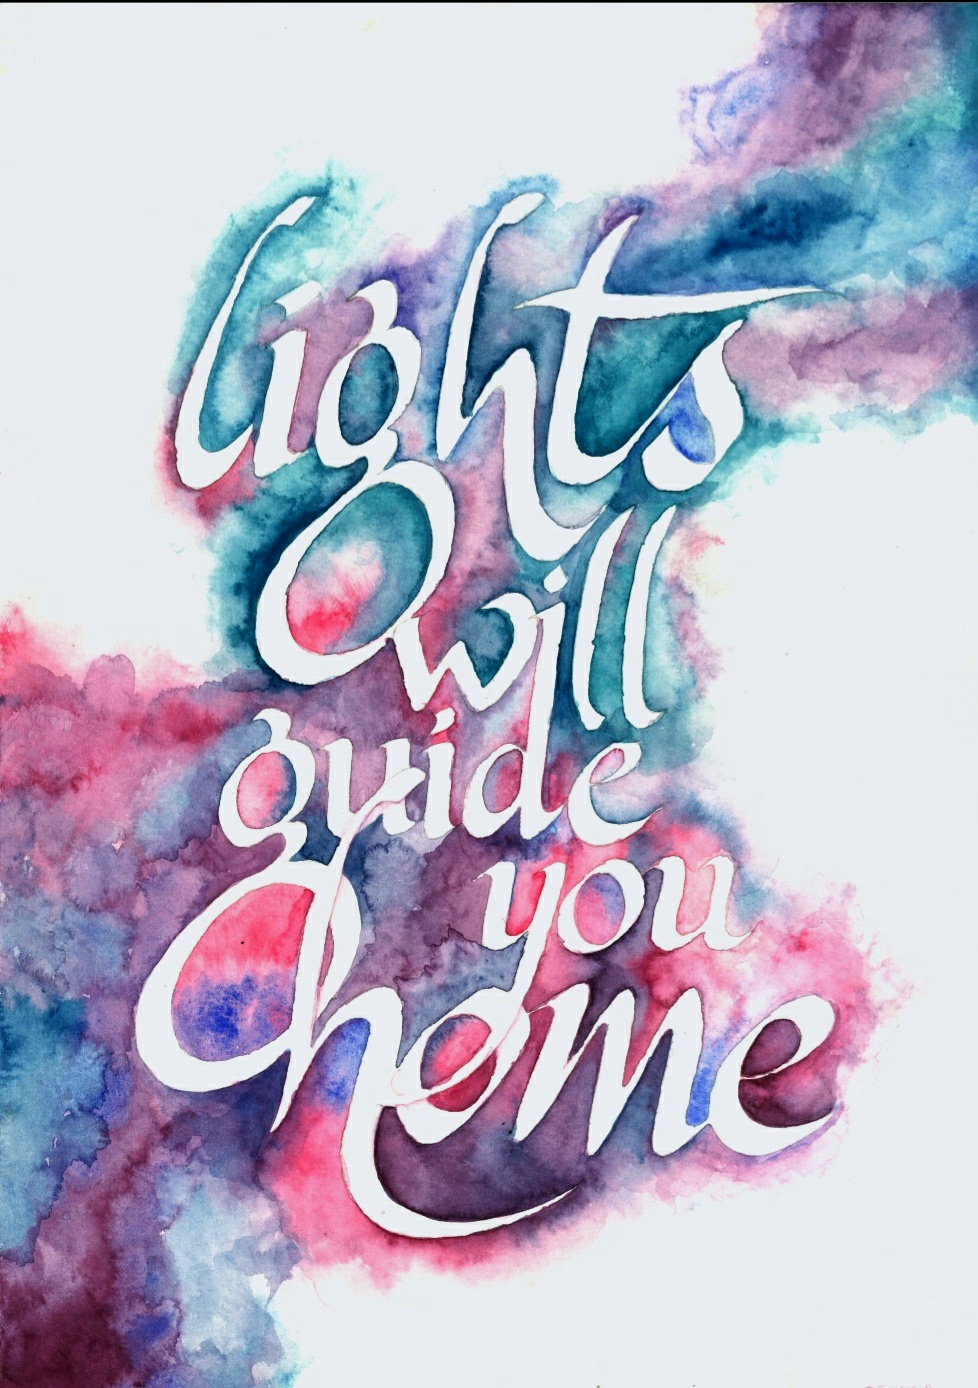 lights
will
guide
you
home